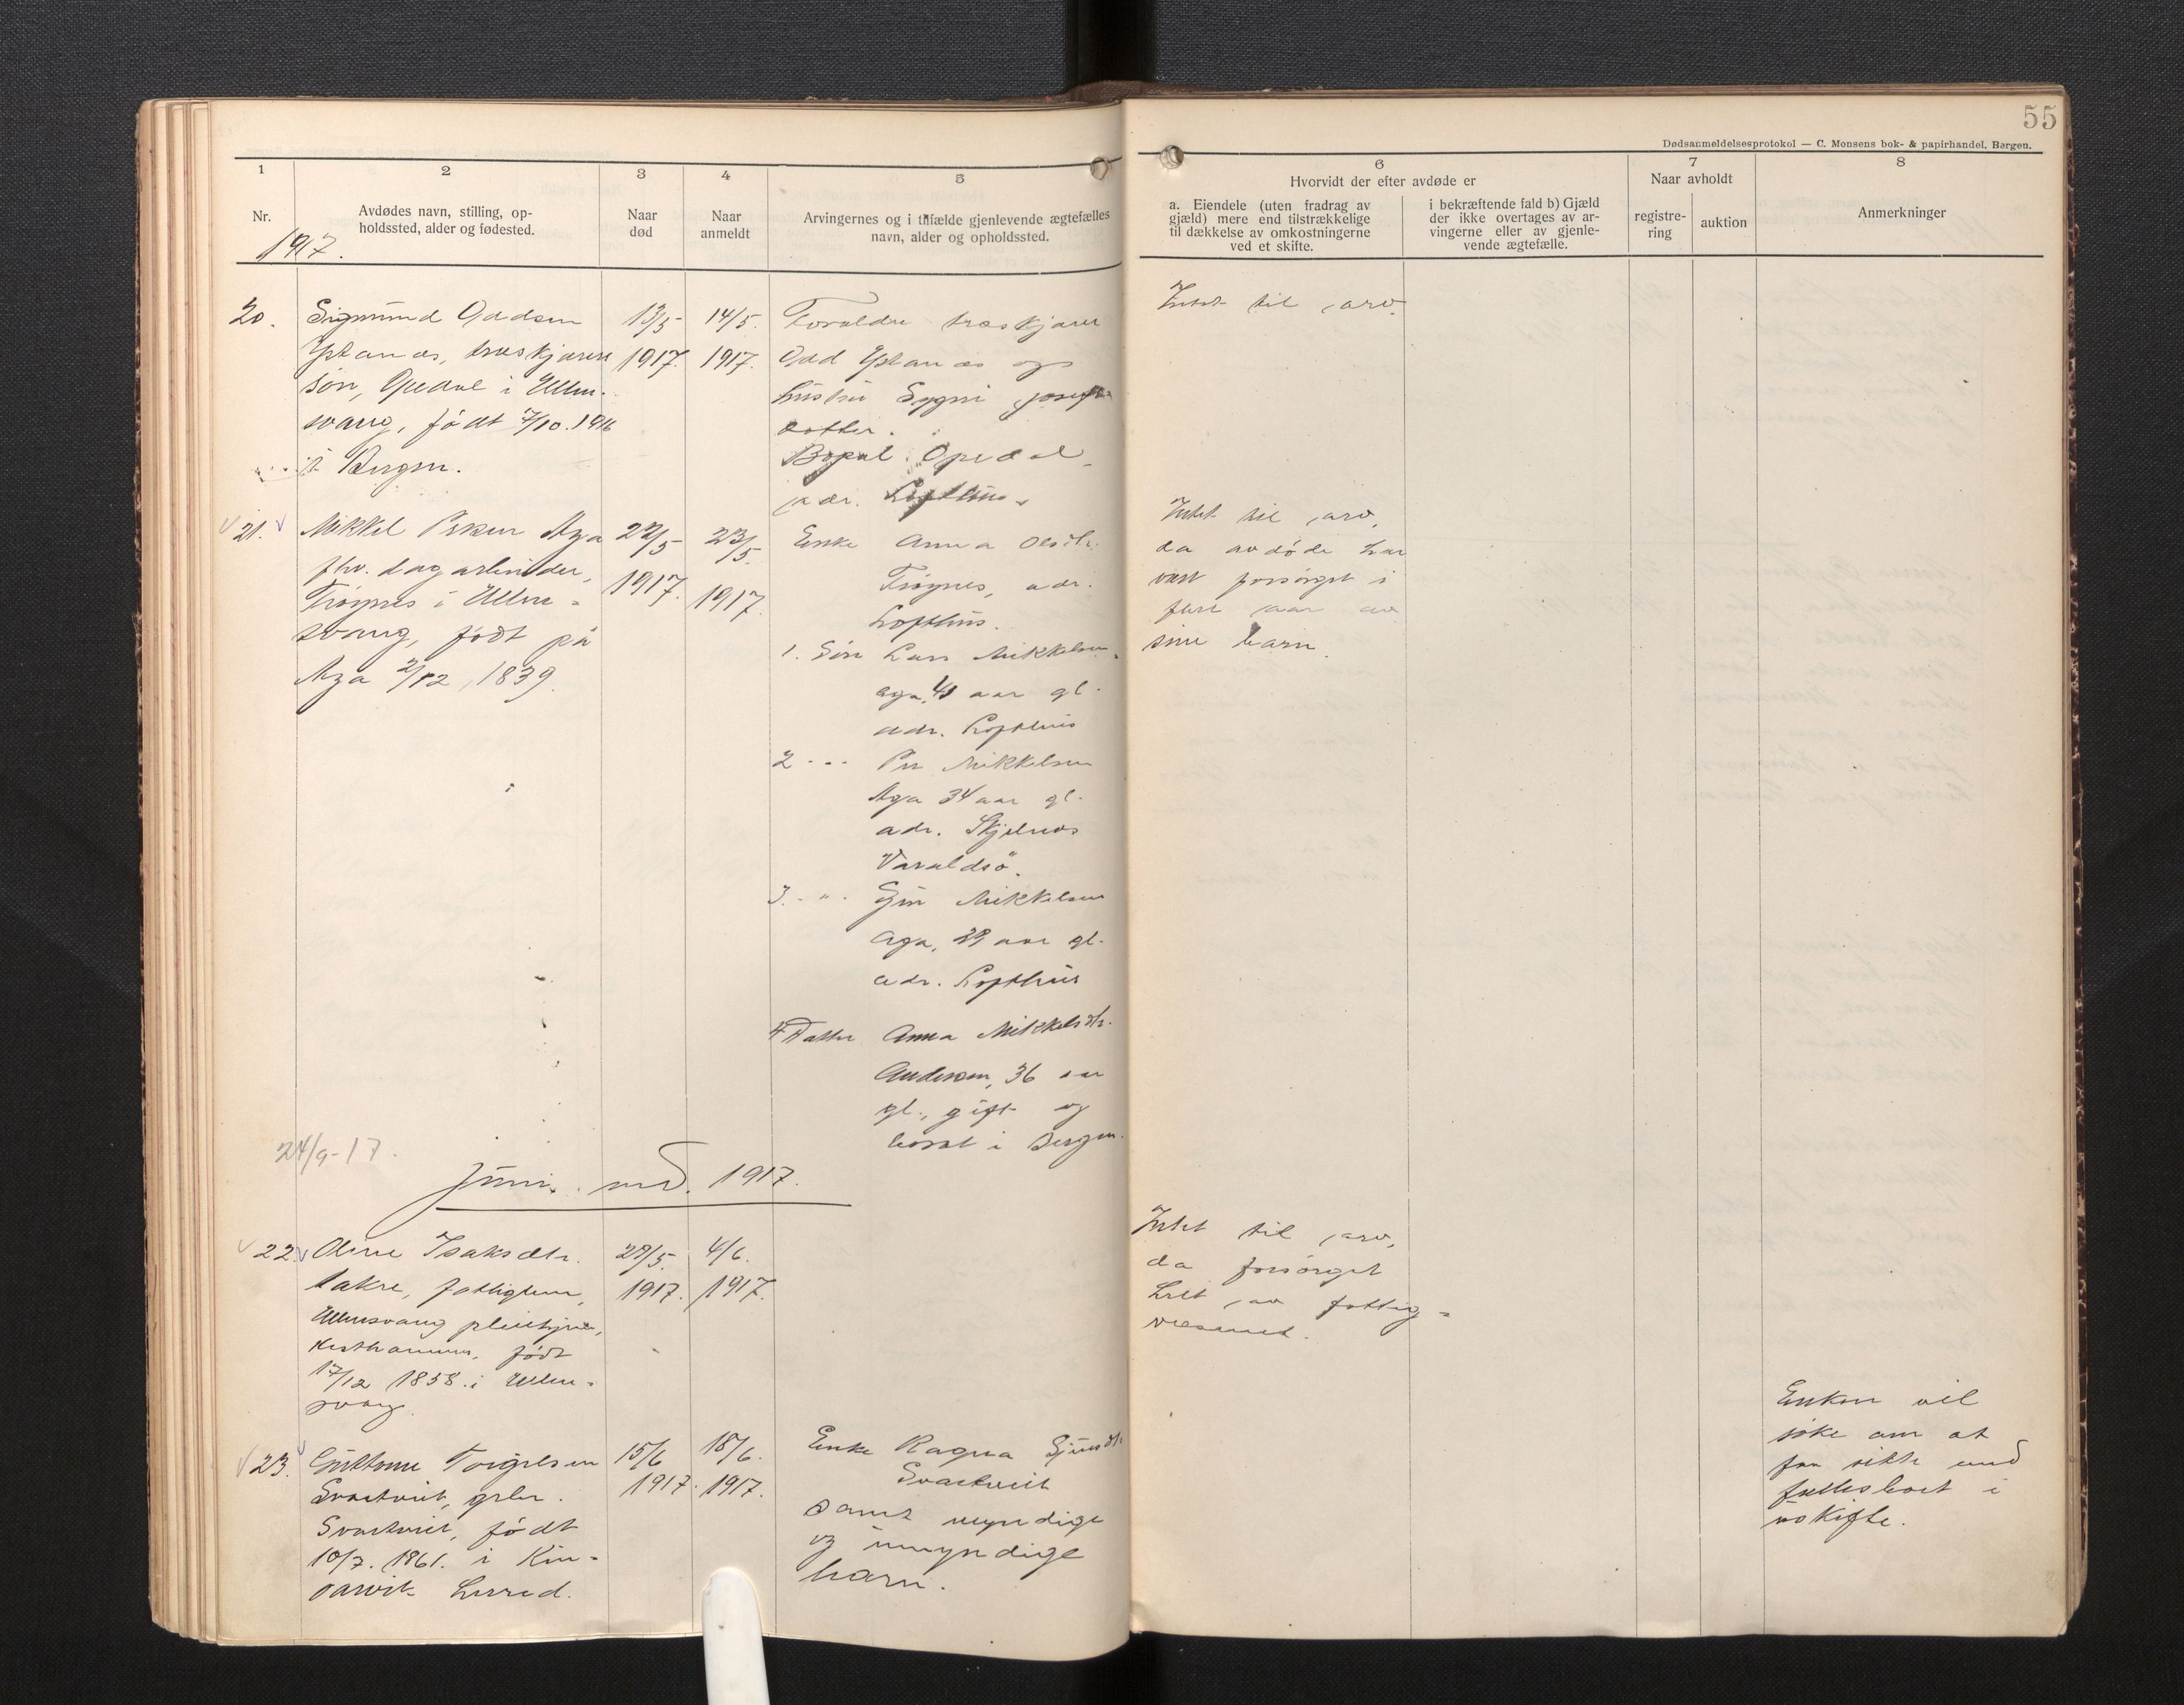 55
Dødsanmeldelsesprotokol — C. Monsens bok- & papirhandel, Bergen.
1
2
3
4
5
6
7
8
Nr.
Avdødes navn, stilling, op-
holdssted, alder og fødested.
Naar
død
Naar
anmeldt
Arvingernes og i tilfælde gjenlevende ægtefælles
navn, alder og opholdssted.
Hvorvidt der efter avdøde er
a. Eiendele (uten fradrag av
gjæld) mere end tilstrækkelige
til dækkelse av omkostningerne
ved et skifte.
i bekræftende fald b) Gjæld
der ikke overtages av ar-
vingerne eller av gjenle-
vende ægtefælle.
Naar avholdt
registre-
ring
auktion
Anmerkninger
1917.
20.
Sigmund Oddsen
Ystanæs, træskjærer
søn, Opedal i Ullens-
vang, født 7/10.1916
i Bergen.
13/5
1917.
14/5.
1917.
Foreldre træskjærer
Odd Ystanæs og
hustru Sygni
datter.
Bopæl: Opedal
adr. Lofthus.
Intet til arv.
21.
Mikkel Persen Aga
fhv. dagarbeider,
i Ullens-
vang, født på
Aga 2/12 1839.
22/5
1917.
23/5.
1917.
Enke Anna Olsdtr.
adr.
Lofthus.
1. Søn Lars Mikkelsen
Aga, 41 aar gl.
adr. Lofthus
2 - " - Per Mikkelsen
Aga 34 aar gl.
adr. Skjelnes
Varaldsö.
3. - " - Mikkelsen
Aga, 29 aar gl.
adr. Lofthus
4 Datter Anna Mikkelsdtr.
Andersen, 36 aar
gl., gift og
bosat i Bergen.
Intet til arv,
da avdøde har
vært forsørget i
flere aar av
sine barn.
24/9-17.
Juni md. 1917.
22.
Oline Isaksdtr.
fattiglem,
Ullensvang pleiehjem,
født
17/12 1858 i Ullens-
vang.
29/5.
1917.
4/6.
1917.
Intet til arv,
da forsørget
helt av fattig-
væsenet.
23.
Guttorm Torgilsen
Svartveit, grbr.
Svartveit, født
10/7. 1861. i Kin-
sarvik herred.
15/6
1917.
18/6.
1917.
Enke Ragna
Svartveit
samt myndige
og umyndige
barn.
Enken vil
søke om at
faa sitte med
fællesboet i
uskifte.